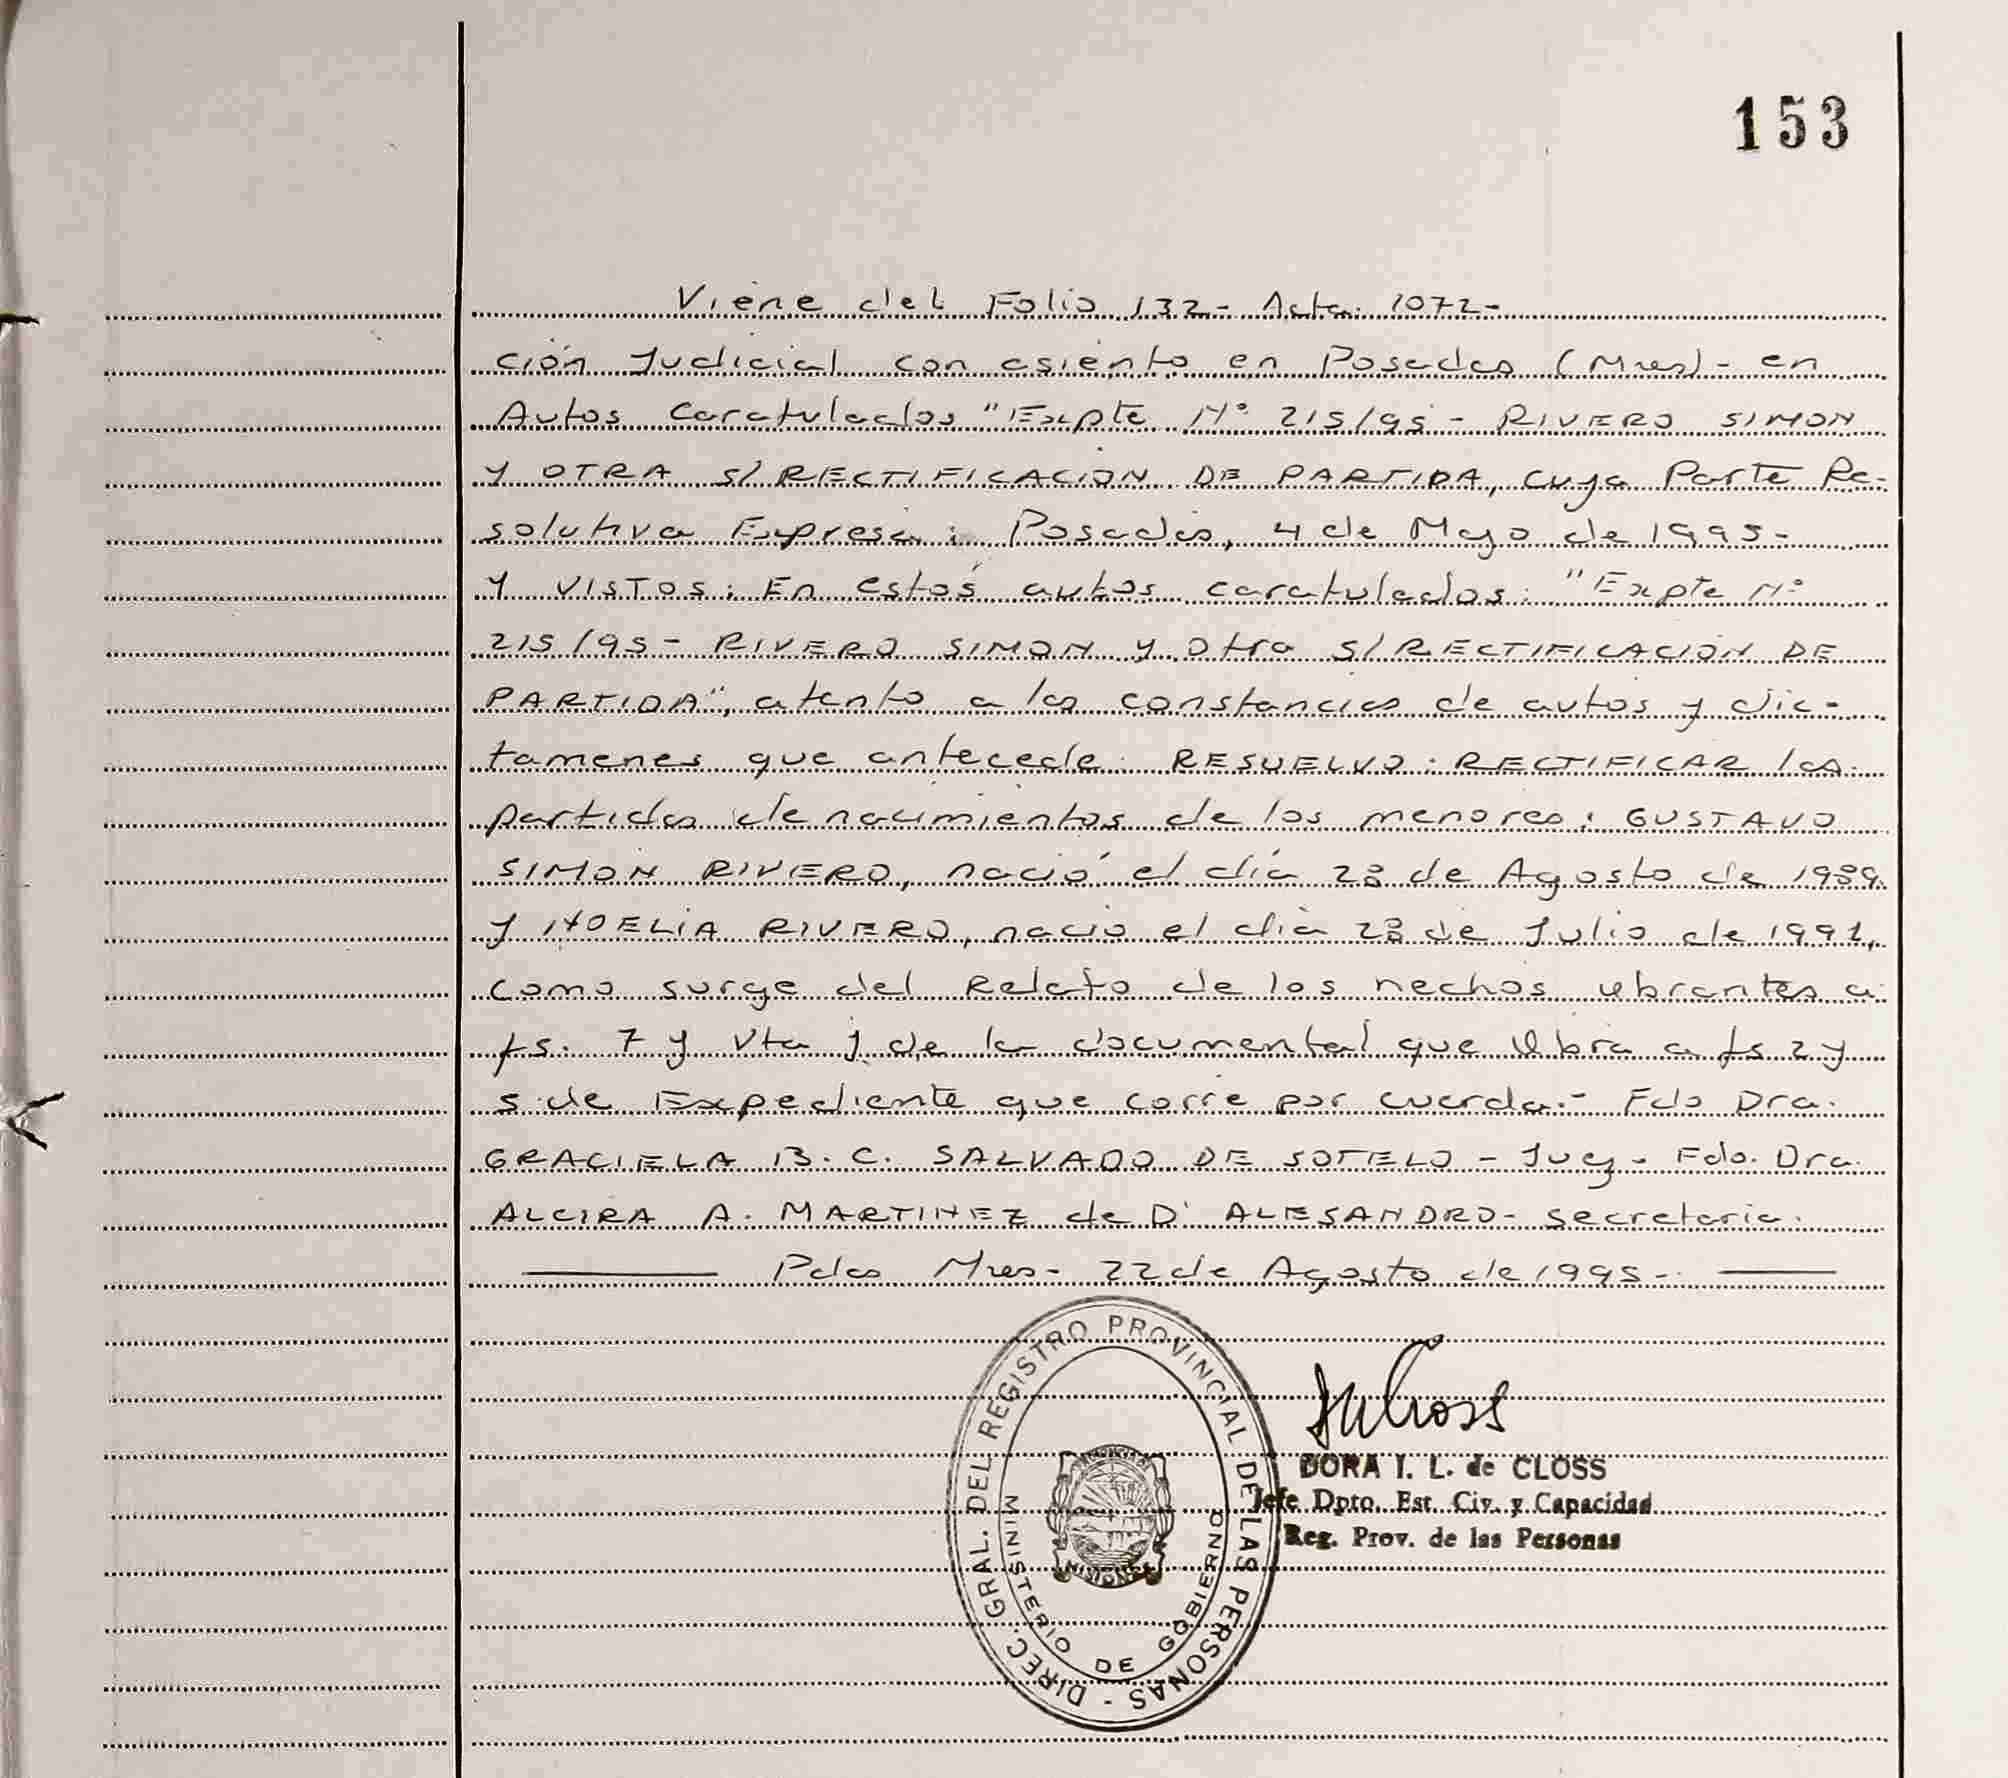 153
Viene del Folio 132- Acta. 1072-
ción Judicial con asiento en Posadas (Mnes)- en
Autos Caratulados "Expte Nº 215/95 - RIVERO SIMON
y OTRA S/ RECTIFICACION DE PARTIDA, cuya Parte Re-
solutiva Expresa: Posadas, 4 de Mayo de 1995-
Y VISTOS: En estos autos caratulados: "Expte Nº
215/95- RIVERO SIMON y otra S/ RECTIFICACIÓN DE
PARTIDA", atento a las constancias de autos y dic-
tamenes que antecede. RESUELVO: RECTIFICAR las
partidas de nacimientos de los menores: GUSTAVO
SIMÓN RIVERO, nació el día 28 de Agosto de 1989.
y NOELIA RIVERO, nació el día 28 de Julio de 1991,
como surge del Relato de los hechos obrantes a
fs. 7 y Vta y de la documental que Obra a fs 2 y
5 de Expediente que corre por cuerda.- Fdo Dra.
GRACIELA B. C. SALVADO DE SOTELO - Juez. Fdo. Dra.
ALCIRA A. MARTINEZ de D' ALESANDRO- secretaria.
Pdas Mnes- 22 de Agosto de 1995-.
DIREC. GRAL. DEL REGISTRO PROVINCIAL DE LAS PERSONAS -
MINISTERIO DE GOBIERNO
MISIONES
DORA I. L. de CLOSS
Jefe Dpto. Est. Civ. y Capacidad
Reg. Prov. de las Personas